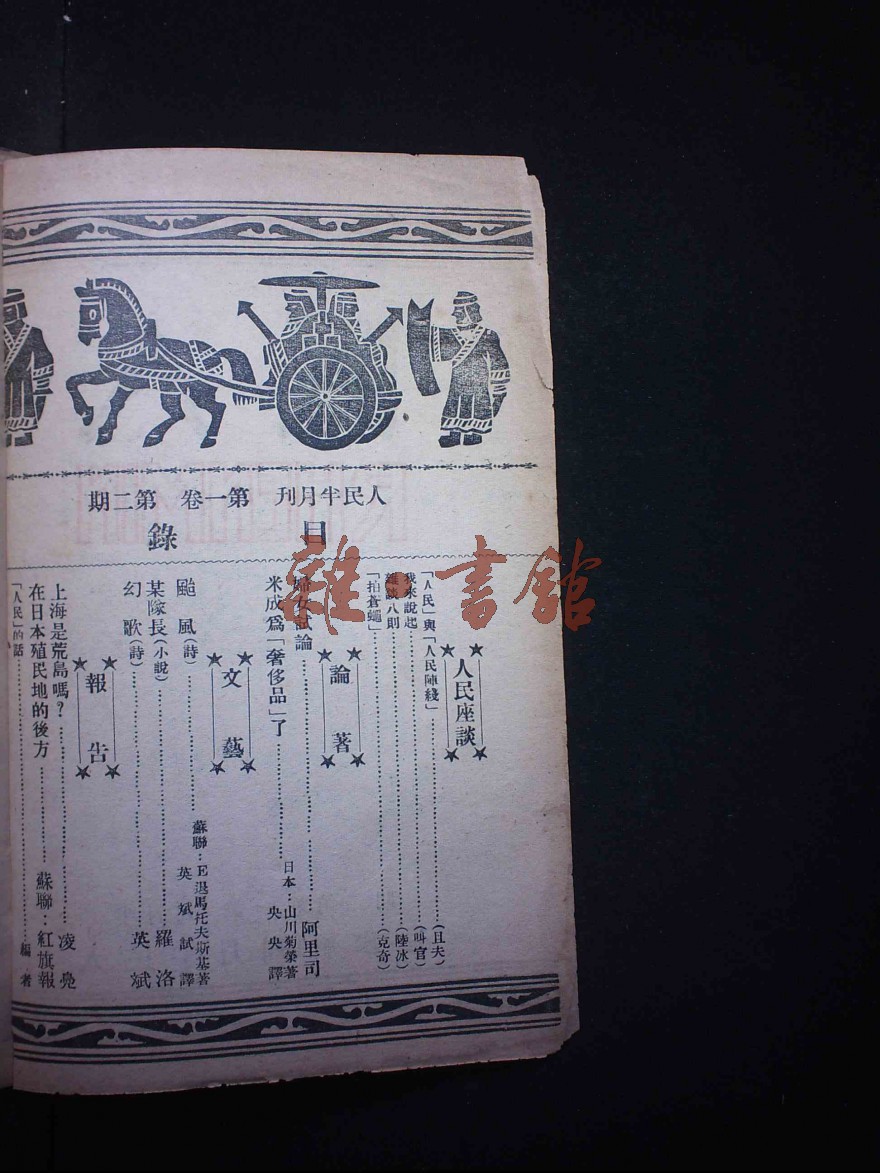 人民半月刊 第一卷 第二期
目錄
人民座談
「人民」與「人民陣綫」……(且夫)
我來說起……(叫官)
雜談八則……(陸冰)
「拍蒼蠅」……(克奇)
論著
婦女試論……阿里司
米成爲「奢侈品」了……日本:山川菊榮著 央央譯
文藝
颱風(詩)……蘇聯:E退馬托夫斯基著 英斌試譯
某隊長(小說)……羅洛
幻歌(詩)……英斌
報告
上海是荒島嗎?……凌堯
在日本殖民地的後方……蘇聯:紅旗報
「人民」的話……編者
雜·書館